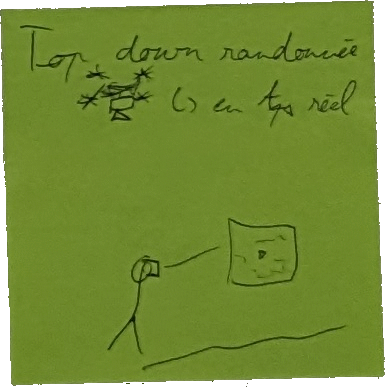 Top down randonnée
↳ en tps réel